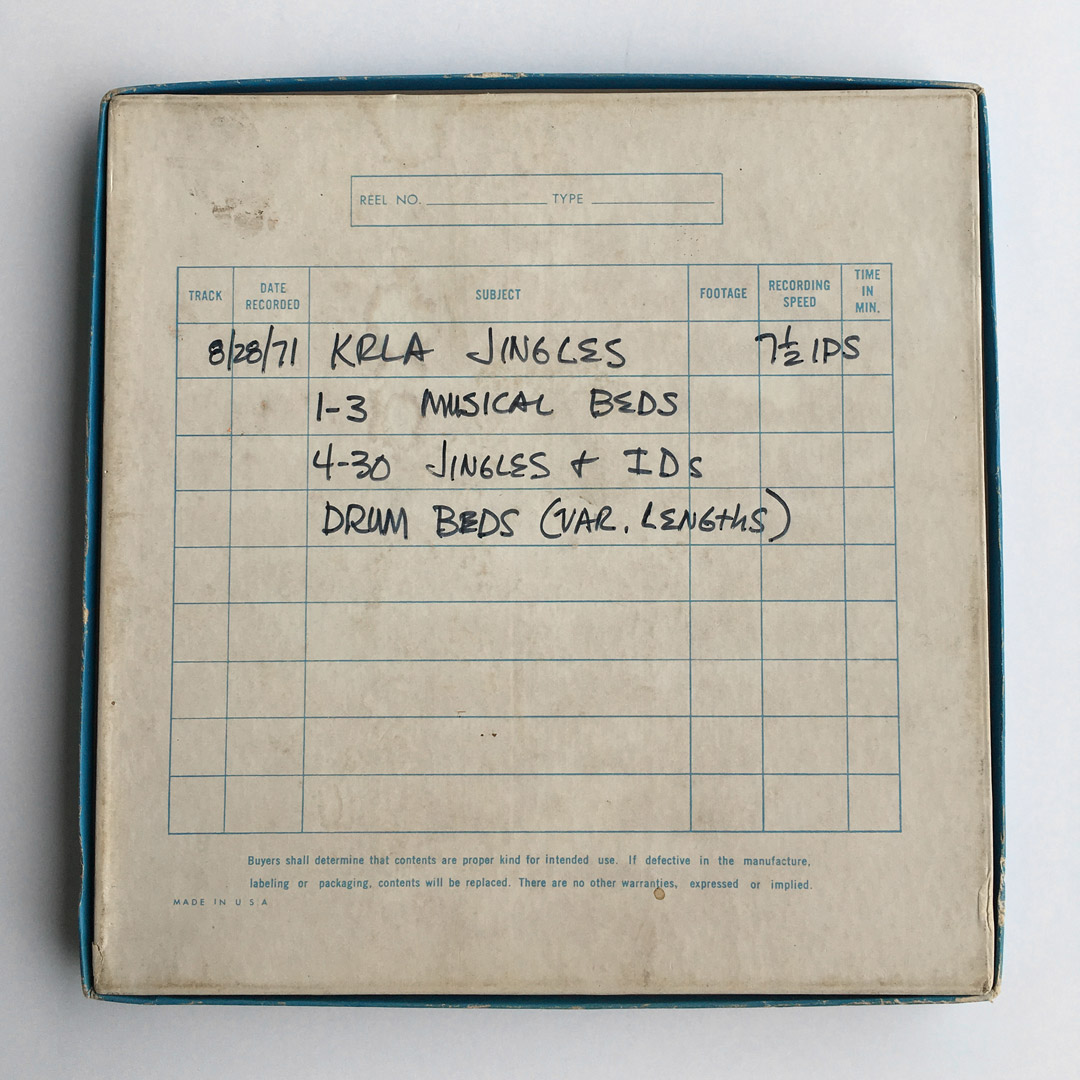 REEL NO. TYPE
TRACK DATE RECORDED SUBJECT FOOTAGE RECORDING SPEED TIME IN MIN.
8/28/71 KRLA JINGLES 7½ IPS
1-3 MUSICAL BEDS
4-30 JINGLES + IDs
DRUM BEDS (VAR. LENGthS)
Buyers shall determine that contents are proper kind for intended use. If defective in the manufacture,
labeling or packaging, contents will be replaced. There are no other warranties, expressed or implied.
MADE IN U S A